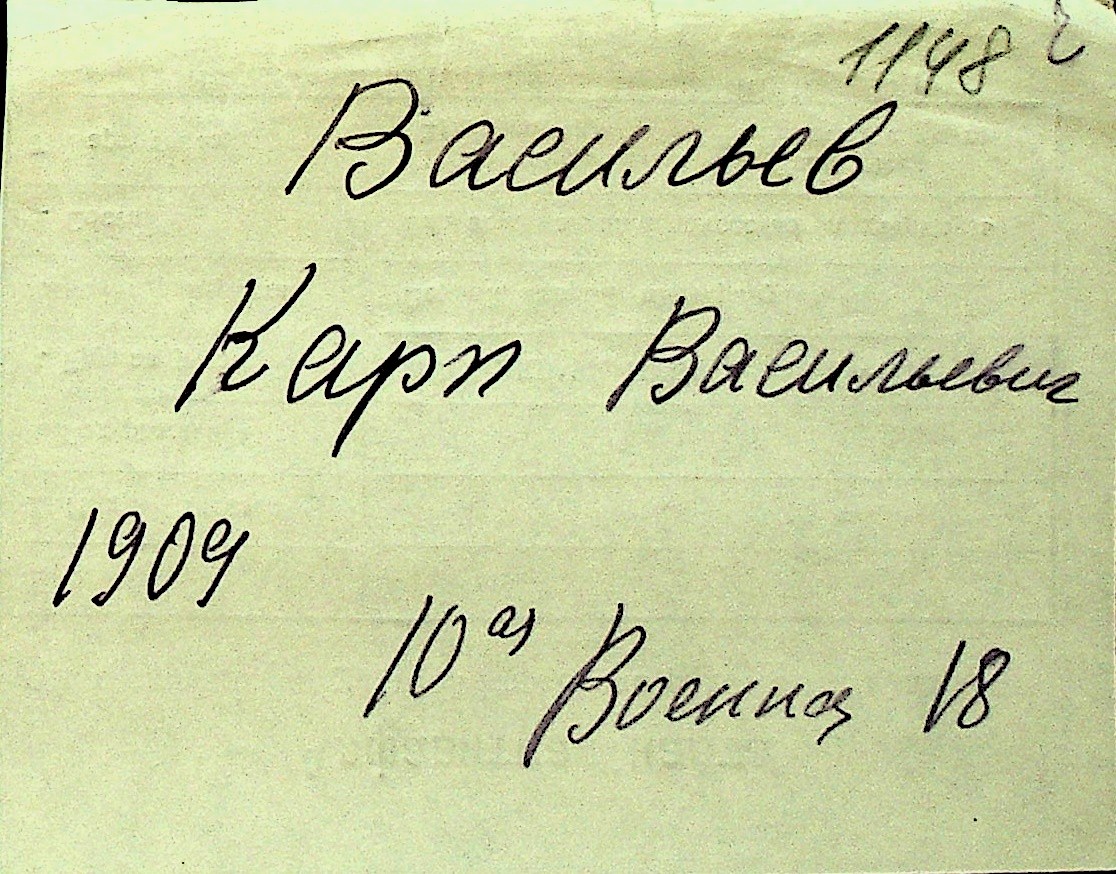 1148 г
Васильев
Карп Васильевич
1909
10ая Военная 18